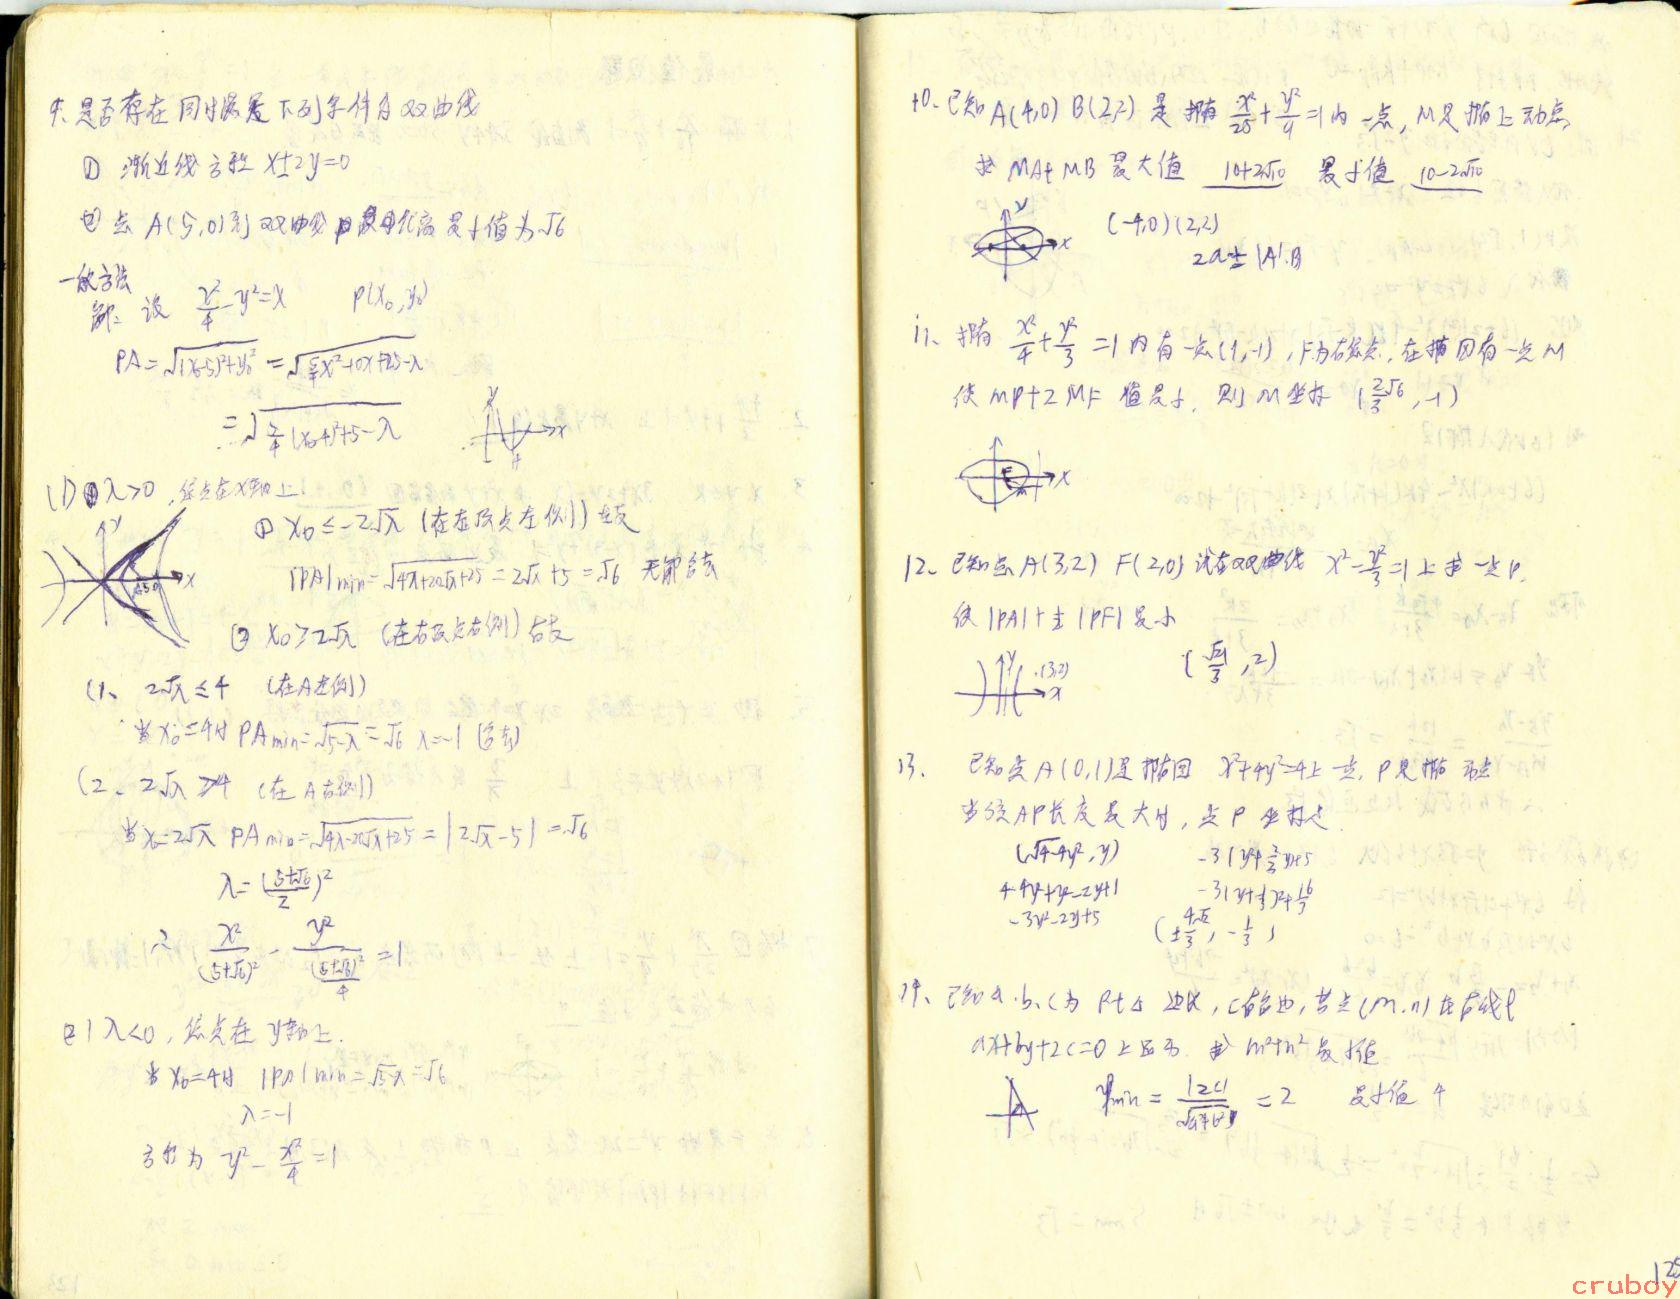 9、是否存在同时满足下列条件的双曲线
① 渐近线方程 x±2y=0
② 点 A(5,0)到双曲线上 离最小值为√6
一般方法
解: 设 x²/4-y²=λ P(x₀,y₀)
PA=√((x₀-5)²+y₀²)=√(5/4x²-10x+25-λ)
=√(5/4(x₀-4)²+5-λ)
y x
A
(1) λ>0,焦点在x轴上
① x₀≤-2√λ (在左顶点左侧) 左支
y x A(5,0)
|PA|min=√(4λ+20√λ+25)=2√λ+5=√6 无解舍去
② x₀≥2√λ (在右顶点右侧) 右支
(1、 2√λ≤4 (在A左侧)
当x₀=4时 PAmin=√(5-λ)=√6 λ=-1 (舍去)
(2、 2√λ≥4 (在A右侧)
当x₀=2√λ PAmin=√(4λ-20√λ+25)=|2√λ-5|=√6
λ=((5+√6)/2)²
∴ x²/(5+√6)² - y²/((5+√6)²/4) =1
(2) λ<0,焦点在 y轴上.
当 x₀=4时 |PA|min=√(5-λ)=√6
λ=-1
方程为 y²-x²/4=1
10、已知A(4,0) B(2,2) 是 椭圆 x²/25+y²/9=1内 一点, M是椭圆上动点,
求 MA+MB 最大值 10+2√10 最小值 10-2√10
y x
(-4,0)(2,2)
2a±|A'B|
11、椭圆 x²/4+y²/3=1内有一点(1,-1),F为右焦点,在椭圆有一点M
使 MP+2MF 值最小,则M坐标 (2/3√6,-1)
F m x
12、已知点A(3,2) F(2,0) 试在双曲线 x²-y²/3=1上求一点P,
使|PA|+½|PF|最小
y (3,2) x
(√21/3,2)
13、 已知点A(0,1)是椭圆 x²+4y²=4上一点, P是椭圆动点
当弦AP长度最大时,点P坐标是
(√4-4y²,y) -3(y²+2/3y)+5
4-4y²+y²-2y+1 -3(y+1/3)²+16/3
-3y²-2y+5 (±4√2/3,-1/3)
14、已知a、b、c为 Rt△ 边长,c为斜边,若点(m,n)在直线l
ax+by+2c=0上 求m²+n²最小值
min=|2c|/√(a²+b²)=2 最小值 4
125
cruboy